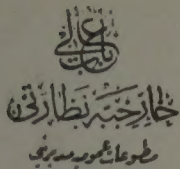 باب عالی
خارجیه نظارتی
مطبوعات عمومیه مدیریتی